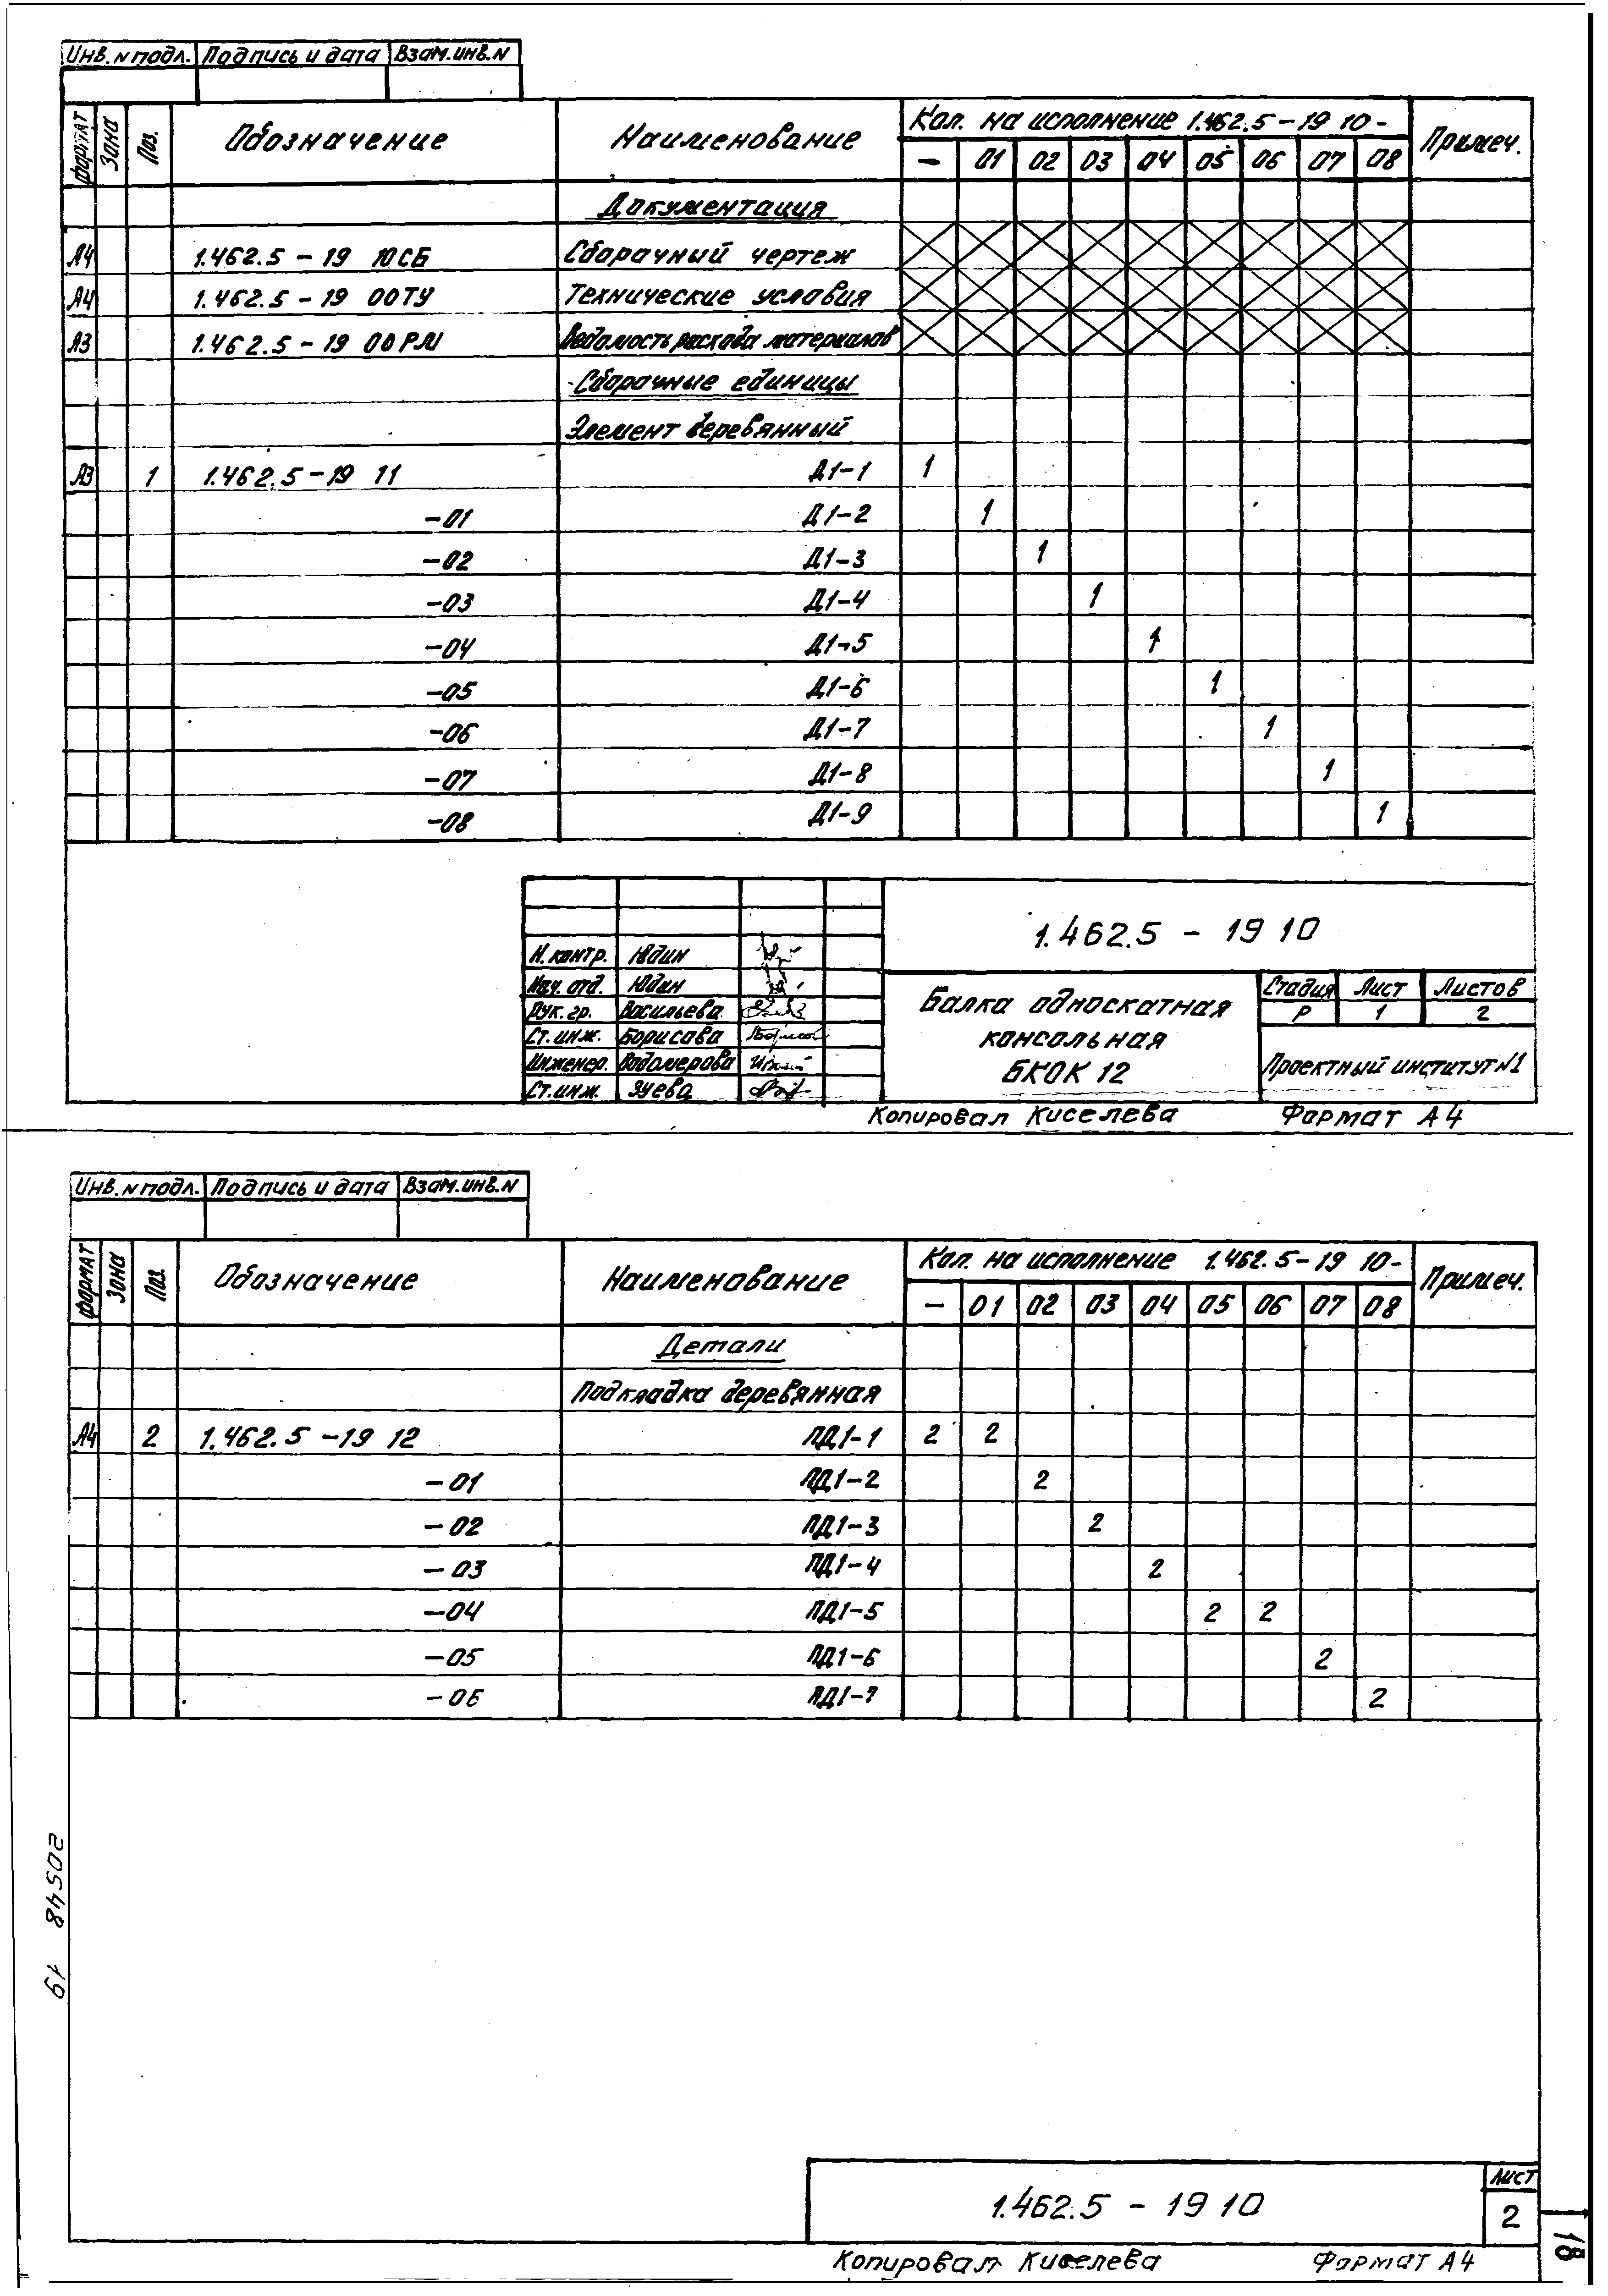 Инв. N подл. Подпись и дата Взам. инв. N
формат Зона Поз. Обозначение Наименование Кол. на исполнение 1.462.5-19 10- Примеч.
- 01 02 03 04 05 06 07 08
Документация
А4 1.462.5-19 10СБ Сборочный чертеж
А4 1.462.5-19 00ТУ Технические условия
А3 1.462.5-19 00РМ Ведомость расхода материалов
Сборочные единицы
Элемент деревянный
А3 1 1.462.5-19 11 Д1-1 1
-01 Д1-2 1
-02 Д1-3 1
-03 Д1-4 1
-04 Д1-5 1
-05 Д1-6 1
-06 Д1-7 1
-07 Д1-8 1
-08 Д1-9 1
1.462.5 - 19 10
Н. контр. Юдин
Нач. отд. Юдин
Рук. гр. Васильева
Ст. инж. Борисова
Инженер. Водомерова
Ст. инж. Зуева
Балка односкатная
консольная
БКОК 12
Стадия Лист Листов
Р 1 2
Проектный институт N1
Копировал Киселева Формат А4
Инв. N подл. Подпись и дата Взам. инв. N
формат Зона Поз. Обозначение Наименование Кол. на исполнение 1.462.5-19 10- Примеч.
- 01 02 03 04 05 06 07 08
Детали
Подкладка деревянная
А4 2 1.462.5-19 12 ПД1-1 2 2
-01 ПД1-2 2
-02 ПД1-3 2
-03 ПД1-4 2
-04 ПД1-5 2 2
-05 ПД1-6 2
-06 ПД1-7 2
20548 19
1.462.5 - 19 10
Лист
2
Копировал Киселева Формат А4
18